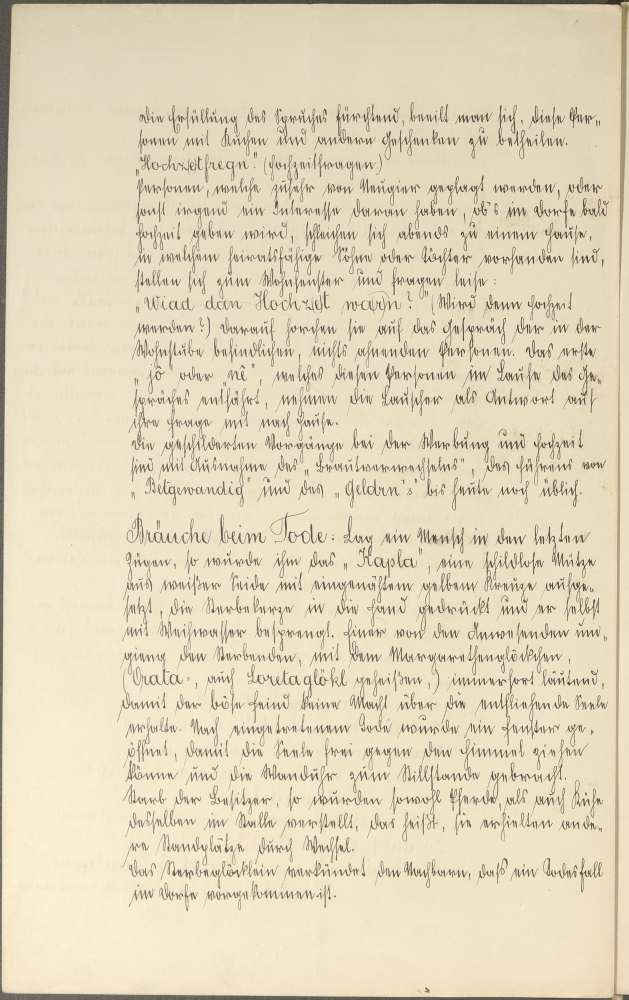 die Erfüllung des Spruches fürchtend, beeilt man sich, diese Per„
sonen mit Kuchen und andern Geschenken zu betheilen.
„Hochzetfregn." (Hochzeitfragen)
Personen, welche zusehr von Neugier geplagt werden, oder
sonst irgend ein Interesse daran haben, ob's im Dorfe bald
Hochzeit geben wird, schleichen sich abends zu einem Hause,
in welchem heiratsfähige Söhne oder Töchter vorhanden sind,
stellen sich zum Wohnfenster und fragen leise:
„Wiad dan Hochzet warn?" (Wird denn Hochzeit
werden?) Darauf horchen sie auf das Gespräch der in der
Wohnstube befindlichen, nichts ahnenden Personen. Das erste
„jô" oder „nê", welches diesen Personen im Laufe des Ge„
spräches entfährt, nehmen die Lauscher als Antwort auf
ihre Frage mit nach Hause.
Die geschilderten Vorgänge bei der Werbung und Hochzeit
sind mit Ausnahme des „Brautverwechselns", des Führens von
„Betgewandig" und des „Geldrn's" bis heute noch üblich.
Bräuche beim Tode: Lag ein Mensch in den letzten
Zügen, so wurde ihm das „Kapla", eine schildlose Mütze
aus weißer Seide mit eingenähtem gelbem Kreuze aufge„
setzt, die Sterbekerze in die Hand gedrückt und er selbst
mit Weihwasser besprengt. Einer von den Anwesenden um„
gieng den Sterbenden, mit dem Margarethenglöckchen,
(Orata-, auch Loretaglökl geheißen,) immerfort läutend,
damit der böse Feind keine Macht über die entfliehende Seele
erhalte. Nach eingetretenem Tode wurde ein Fenster ge„
öffnet, damit die Seele frei gegen den Himmel ziehen
könne und die Wanduhr zum Stillstande gebracht.
Starb der Besitzer, so wurden sowohl Pferde, als auch Kühe
desselben im Stalle verstellt, das heißt, sie erhielten ande„
re Standplätze durch Wechsel.
Das Sterbeglöcklein verkündet den Nachbarn, daß ein Todesfall
im Dorfe vorgekommen ist.